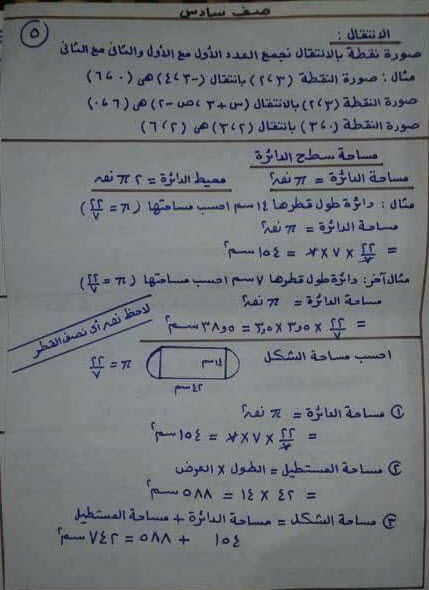 صف سادس
٥
الانتقال :
صورة نقطة بالانتقال نجمع العدد الأول مع الأول والثانى مع الثانى
مثال : صورة النقطة (٣ ، ٢) بانتقال (-٣ ، ٤) هى (٠ ، ٦)
صورة النقطة (٣ ، ٢) بالانتقال (س + ٣ ، ص - ٢) هى (٦ ، ٠)
صورة النقطة (٠ ، ٣) بانتقال (٢ ، ٣) هى (٢ ، ٦)
مساحة سطح الدائرة
مساحة الدائرة = π نق² محيط الدائرة = ٢ π نق
مثال : دائرة طول قطرها ١٤ سم احسب مساحتها (π = ٢٢/٧)
مساحة الدائرة = π نق²
= ٢٢/٧ × ٧ × ٧ = ١٥٤ سم²
مثال آخر : دائرة طول قطرها ٧ سم احسب مساحتها (π = ٢٢/٧)
مساحة الدائرة = π نق²
= ٢٢/٧ × ٣,٥ × ٣,٥ = ٣٨,٥ سم²
لاحظ نق أى نصف القطر
احسب مساحة الشكل
١٤ سم
٤٢ سم
π = ٢٢/٧
① مساحة الدائرة = π نق²
= ٢٢/٧ × ٧ × ٧ = ١٥٤ سم²
② مساحة المستطيل = الطول × العرض
= ٤٢ × ١٤ = ٥٨٨ سم²
③ مساحة الشكل = مساحة الدائرة + مساحة المستطيل
١٥٤ + ٥٨٨ = ٧٤٢ سم²